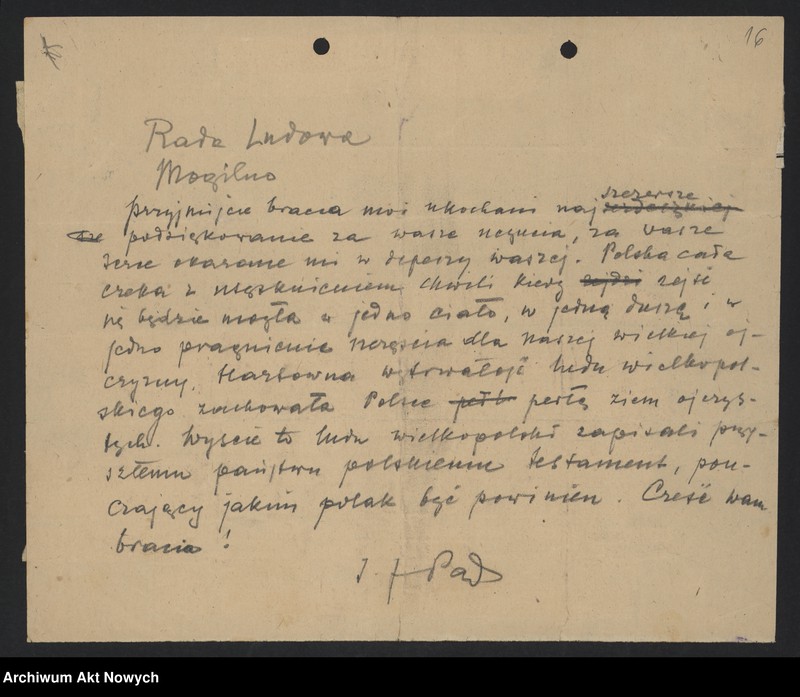 16
Rada Ludowa
Mogilno
Przyjmijcie bracia moi ukochani najszczersze
podziękowanie za wasze uczucia, za wasze
serce okazane mi w depeszy waszej. Polska cała
czeka z utęsknieniem chwili kiedy zejść
się będzie mogła w jedno ciało, w jedną duszę i w
jedno pragnienie szczęścia dla naszej wielkiej oj-
czyzny. Hartowna wytrwałość ludu wielkopol-
skiego zachowała Polsce perłę ziem ojczys-
tych. Wyście to ludu wielkopolski zapisali przy-
szłemu państwu polskiemu testament, pou-
czający jakim polak być powinien. Cześć wam
bracia!
I J Pad
Archiwum Akt Nowych